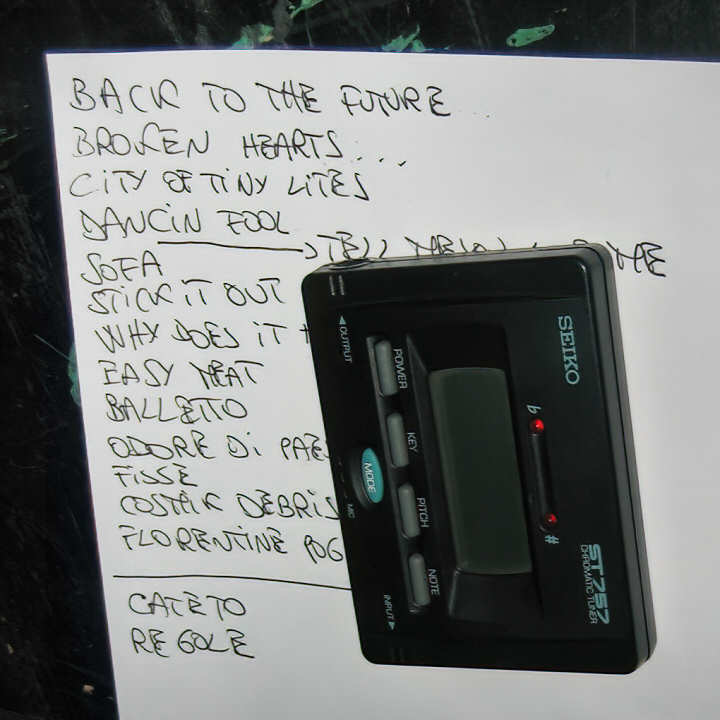 BACK TO THE FUTURE
BROKEN HEARTS....
CITY OF TINY LITES
DANCIN FOOL
ME
SOFA
STICK IT OUT
WHY DOES IT
EASY MEAT
BALLETTO
ODORE DI
FISSE
COSMIK DEBRIS
FLORENTINE POG
CATETO
REGOLE
SEIKO
ST757
CHROMATIC TUNER
OUTPUT
POWER
KEY
MODE
PITCH
MIC
NOTE
INPUT
b
#